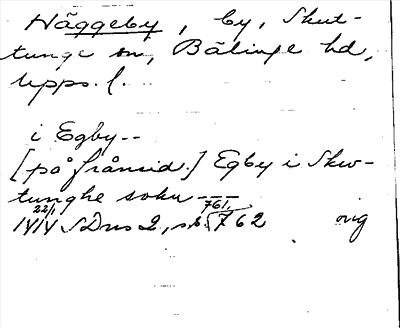 Häggeby, by, Skut-
tunge sn, Bälinge hd,
Upps. l.
i Egby--
[på frånsid.] Egby i Skw-
tunghe sokn ---
22/1 761,
1414 SDns 2, s. 762 orig